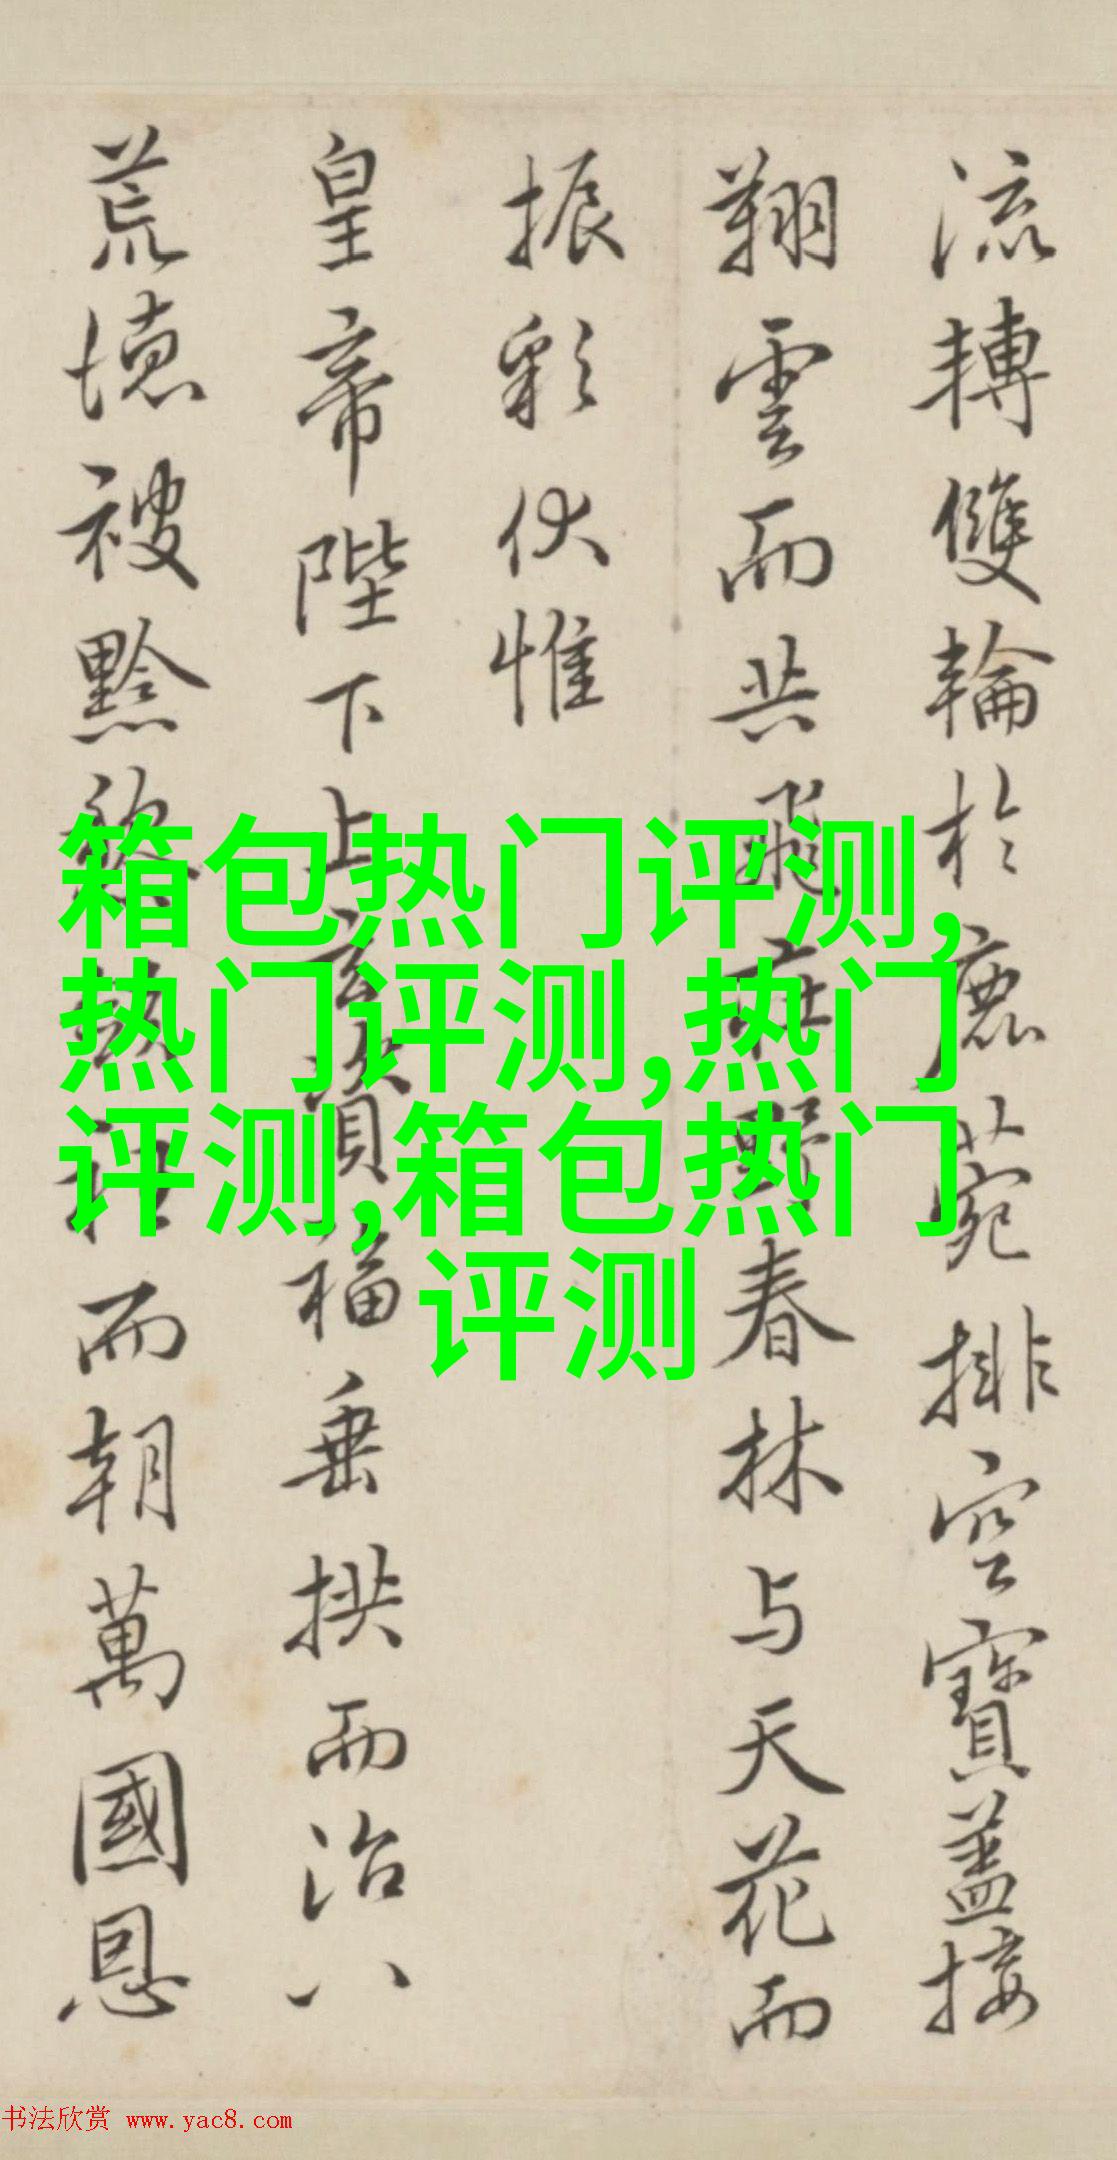 流轉雙輪於鹿菀排空寶蓋接
翔雲而共飛莊野春林与天花而
振彩伏惟
皇帝陛下上玄資福垂拱而治八
荒德被黔黎而朝萬國恩
箱包热门评测,
热门评测,热门
评测,箱包热门
评测
书法欣赏 www.yac8.com